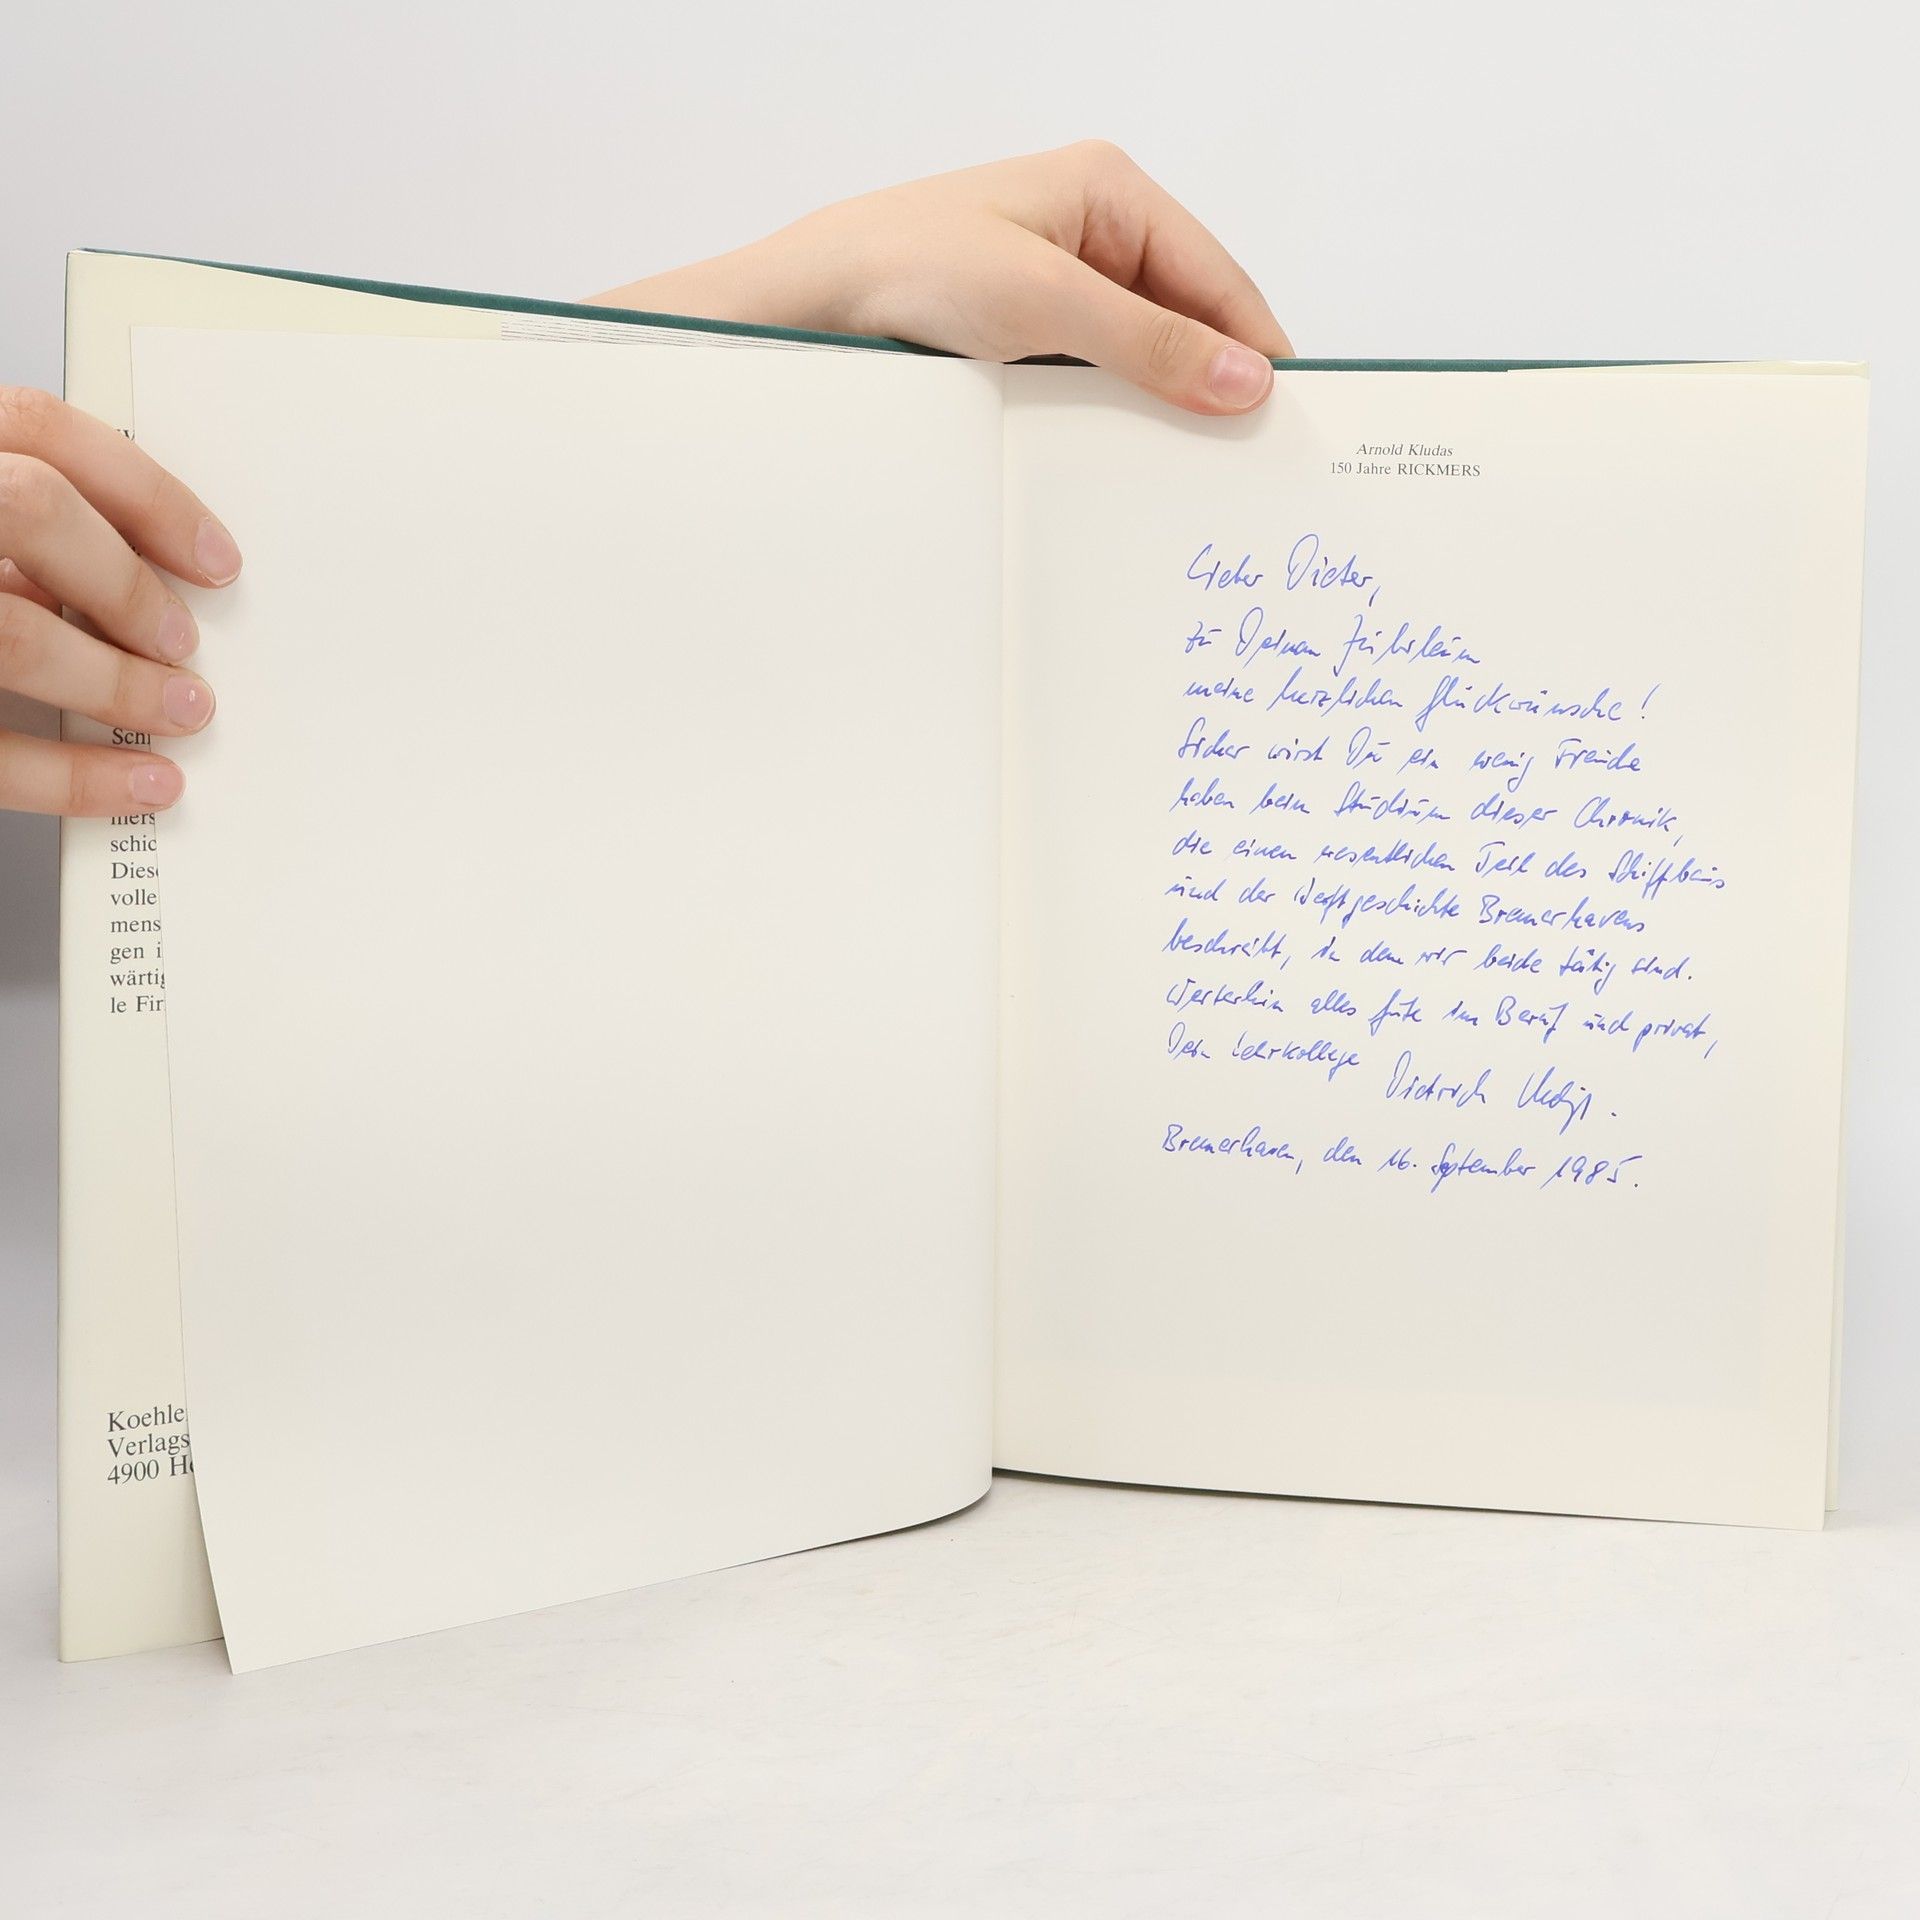 Schi
mers
schic
Diese
volle
mens
gen i
wärtig
le Fir
Koehle
Verlags
4900 He
Arnold Kludas
150 Jahre RICKMERS
Lieber Dieter,
zu Deinem Jubiläum
meine herzlichen Glückwünsche!
Sicher wirst Du ein wenig Freude
haben beim Studium dieser Chronik,
die einen wesentlichen Teil des Schiffbaus
und der Werftgeschichte Bremerhavens
beschreibt, in dem wir beide tätig sind.
Weiterhin alles Gute im Beruf und privat,
Dein Lehrkollege
Dietrich
Bremerhaven, den 16. September 1985.